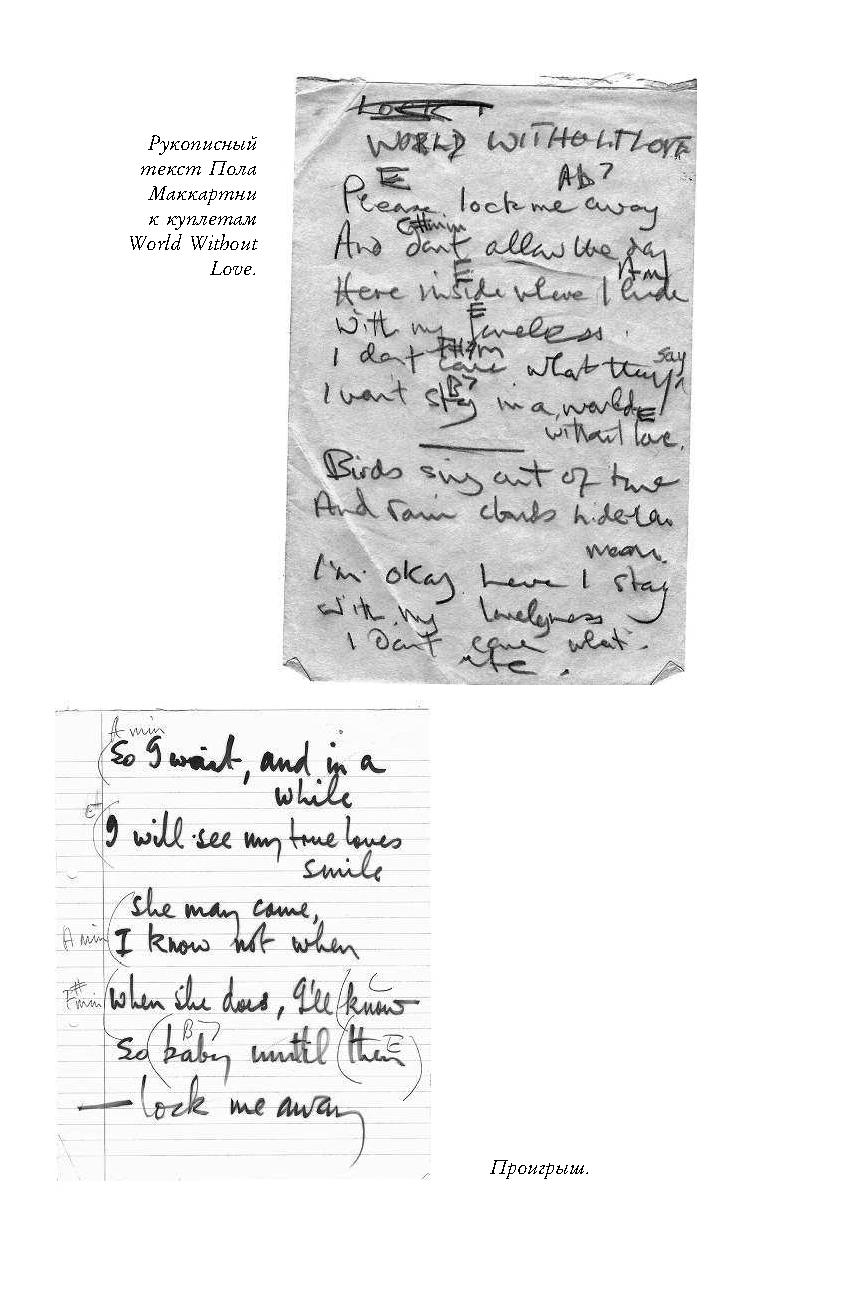 Рукописный
текст Пола
Маккартни
к куплетам
World Without
Love.
LOCK
WORLD WITHOUT LOVE
E Ab7
Please lock me away
C#min
And dont allow the day
E Am
Here inside where I hide
E
with my loneliness.
F#7m say
I dont care what they
B7
I wont stay in a world E
without love.
Birds sing out of tune
And rain clouds hide the
moon.
I'm okay here I stay
with my lonelyness
I Dont care what.
etc.
A min
So I wait, and in a
while
E
I will see my true loves
smile
she may come,
A min I know not when
F#min When she does, I'll know C
B7 E
So baby until then
— lock me away
Проигрыш.